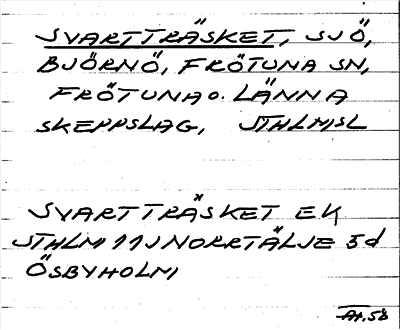 SVARTTRÄSKET, SJÖ,
BJÖRNÖ, FRÖTUNA SN,
FRÖTUNA O. LÄNNA
SKEPPSLAG, STHLMSL
SVARTTRÄSKET EK
STHLM 11J NORRTÄLJE 5d
ÖSBYHOLM